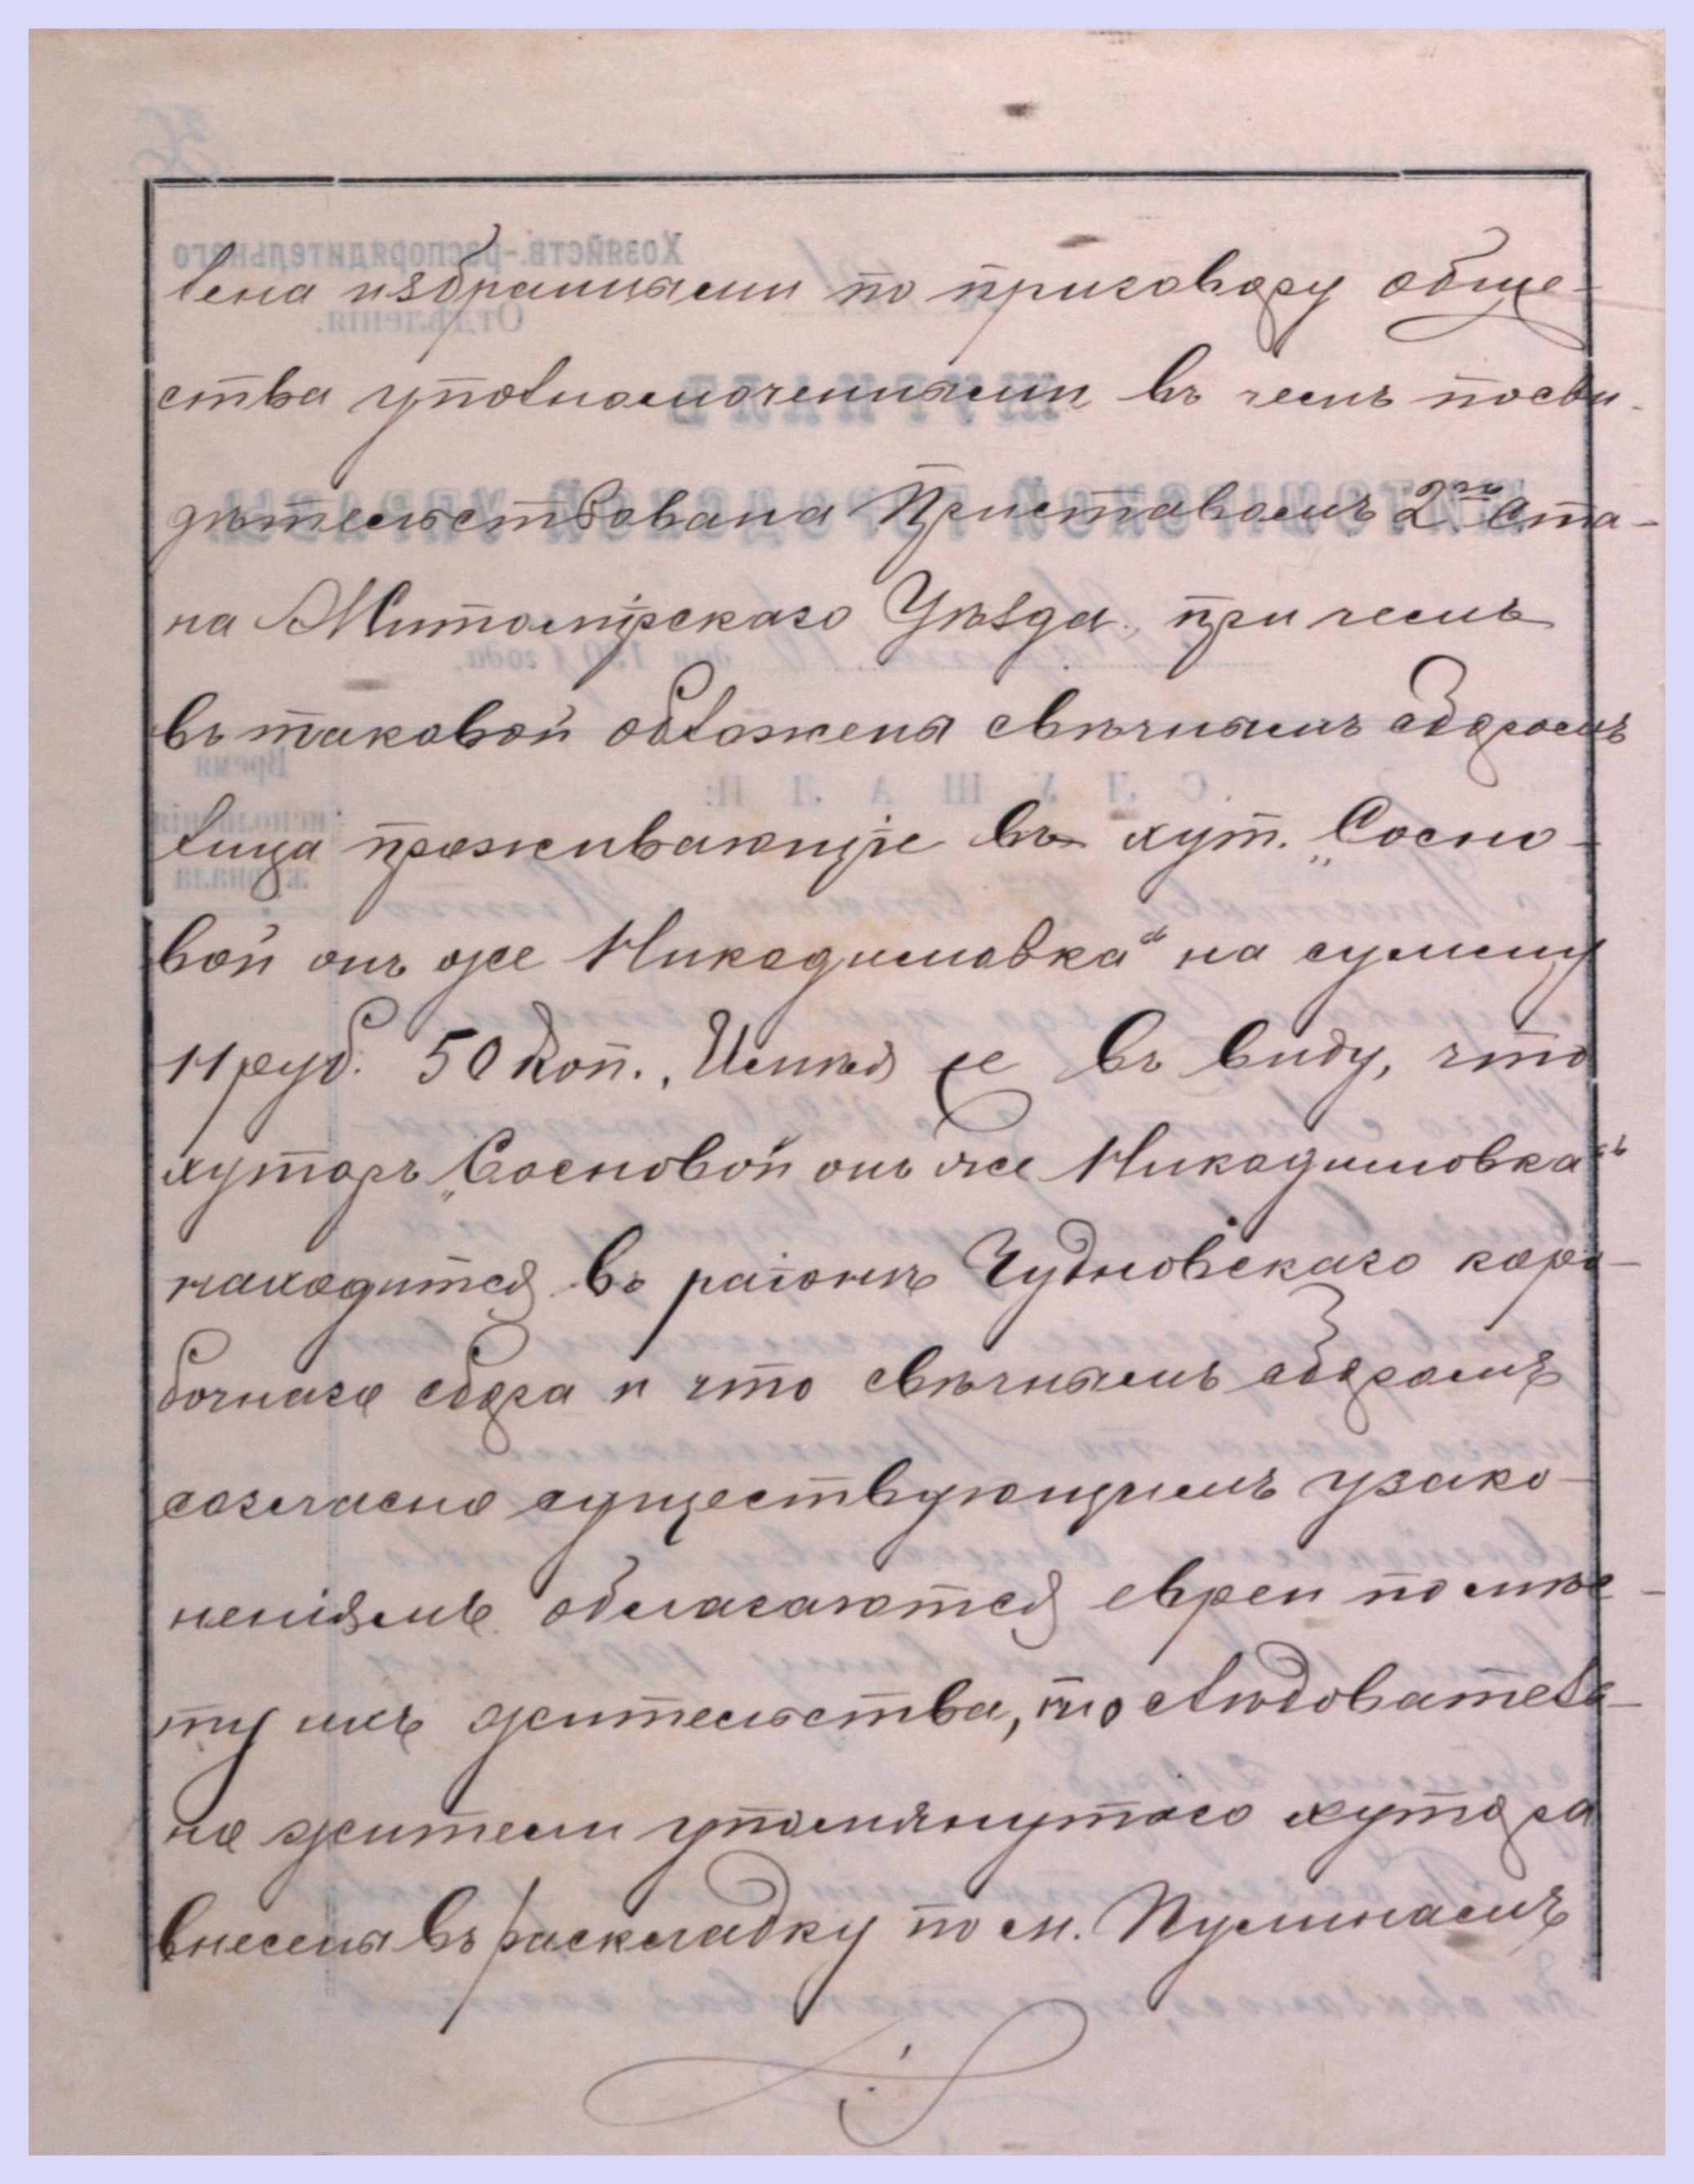 лена избранными по приговору обще-
ства уполномоченными въ чемъ посви-
дѣтельствована Приставомъ 2го Ста-
на Житомірскаго Уѣзда, при чемъ
въ таковой обложены свѣчнымъ сборомъ
лица проживающіе въ хут. „Сосно-
вой онъ же Никодимовка“ на сумму
11 руб. 50 коп., Имѣя же въ виду, что
хуторъ „Сосновой онъ же Никодимовка“
находится въ раіонѣ Чудновскаго коро-
бочнаго сбора и что свѣчнымъ сборомъ
согласно существующимъ узако-
неніямъ облагаются евреи по мѣс-
ту ихъ жительства, то слѣдователь-
но жители упомянутаго хутора
внесены въ раскладку по м. Пулинамъ